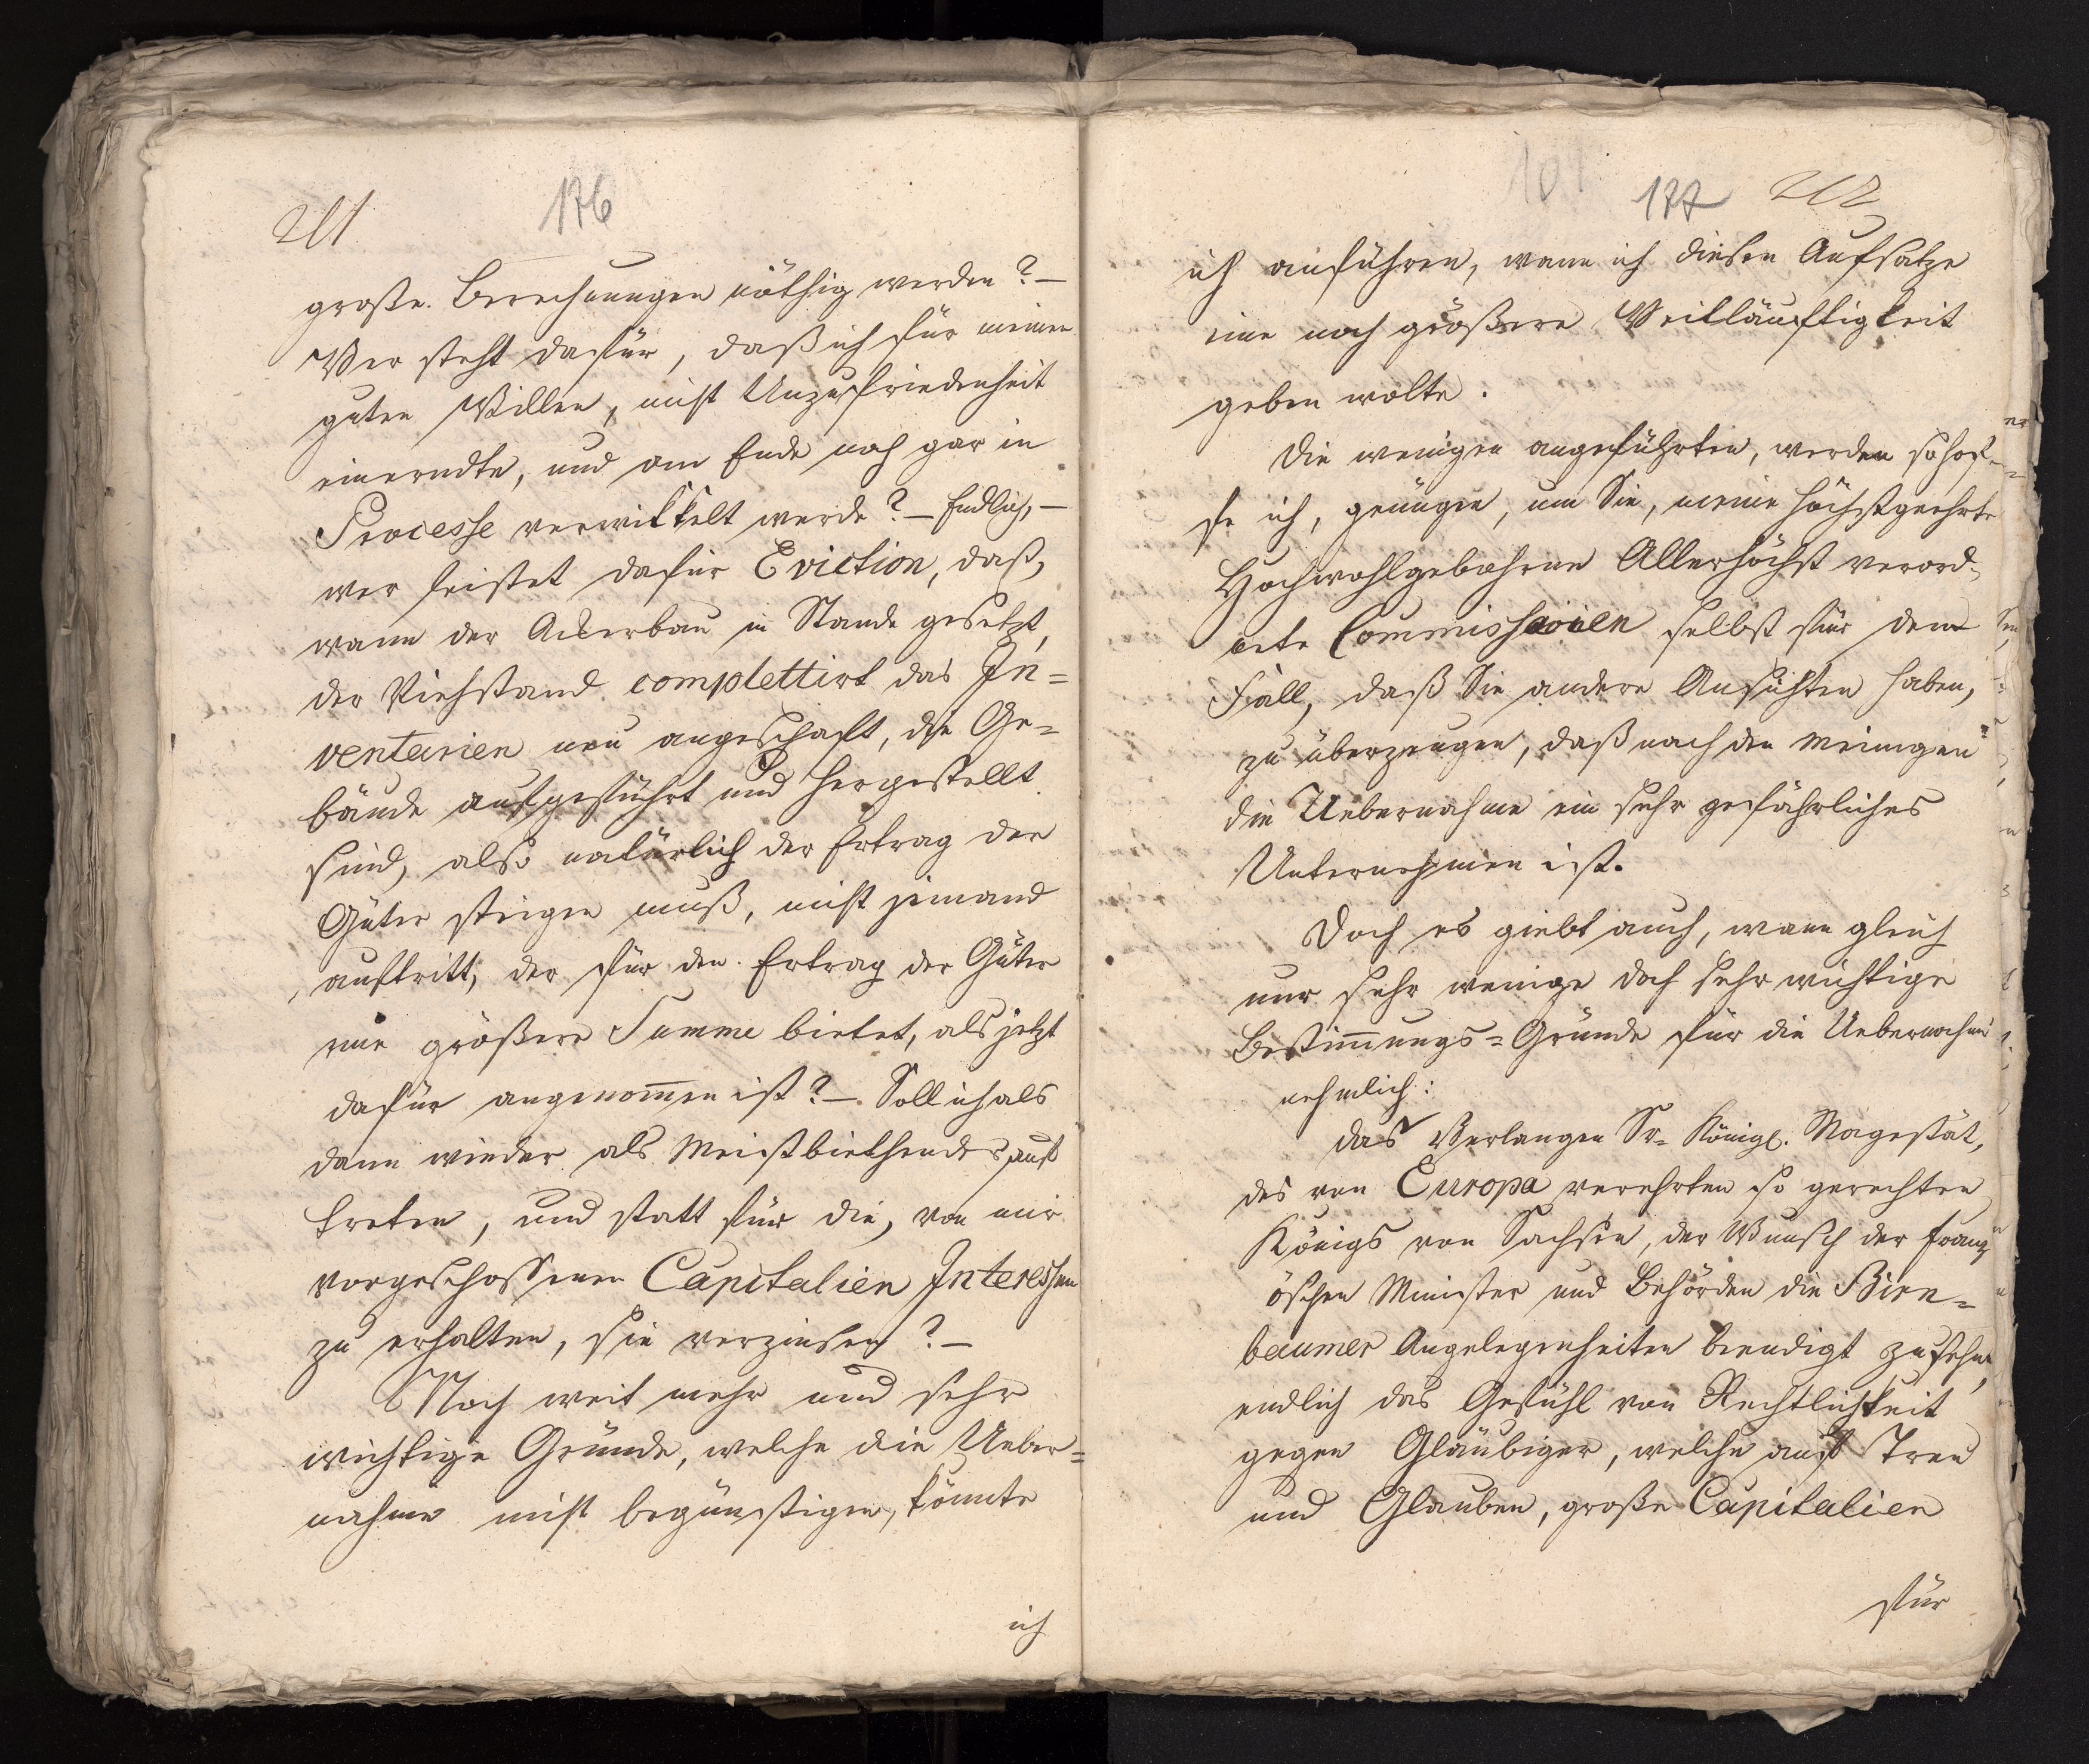 211
176
große Berechnungen nöthig werden? —
Wer steht dafür, daß ich für meinen
guten Willen, nicht Unzufriedenheit
einerndte, und am Ende noch gar in
Processe verwikkelt werde? — Endlich, —
wer leistet dafür Eviction, daß,
wann der Ackerbau in Stande gesetzt,
der Viehstand complettirt das In=
ventarien neu angeschaft, die Ge=
bäude aufgeführt und hergestellt
sind, also natürlich der Ertrag der
Güter steigen muß, nicht jemand
auftritt, der für den Ertrag der Güter
eine größere Summe bietet, als jetzt
dafür angenom̄en ist? — Soll ich als
dann wieder als Meistbiethender auf
treten, und statt für die, von mir
vorgeschossenen Capitalien Interessen
zu erhalten, sie verzinsen? —
Noch weit mehr und sehr
wichtige Gründe, welche die Ueber=
nahme nicht begünstigen, könnte
ich
177
212
ich anführen, wann ich diesem Aufsatze
eine noch größere Weitläuftigkeit
geben wolte.
Die wenigen angeführten, werden so hof=
fe ich, genügen, um Sie, meine höchstgeehrte
Hochwohlgebohrne Allerhöchst verord=
nete Commissarien selbst für den
Fall, daß Sie andere Ansichten haben,
zu überzeugen, daß nach den meinigen
die Uebernahme ein sehr gefährliches
Unternehmen ist.
Doch es giebt auch, wann gleich
nur sehr wenige doch sehr wichtige
Bestim̄ungs=Gründe für die Uebernahme
nehmlich:
das Verlangen Sr. Königl. Magestät,
des von Europa verehrten so gerechten
Königs von Sachsen, der Wunsch der franz
öschen Minister und Behörden die Birn=
baumer Angelegenheiten beendigt zu sehn,
endlich das Gefühl von Rechtlichkeit
gegen Gläubiger, welche auf Treu
und Glauben, große Capitalien
für